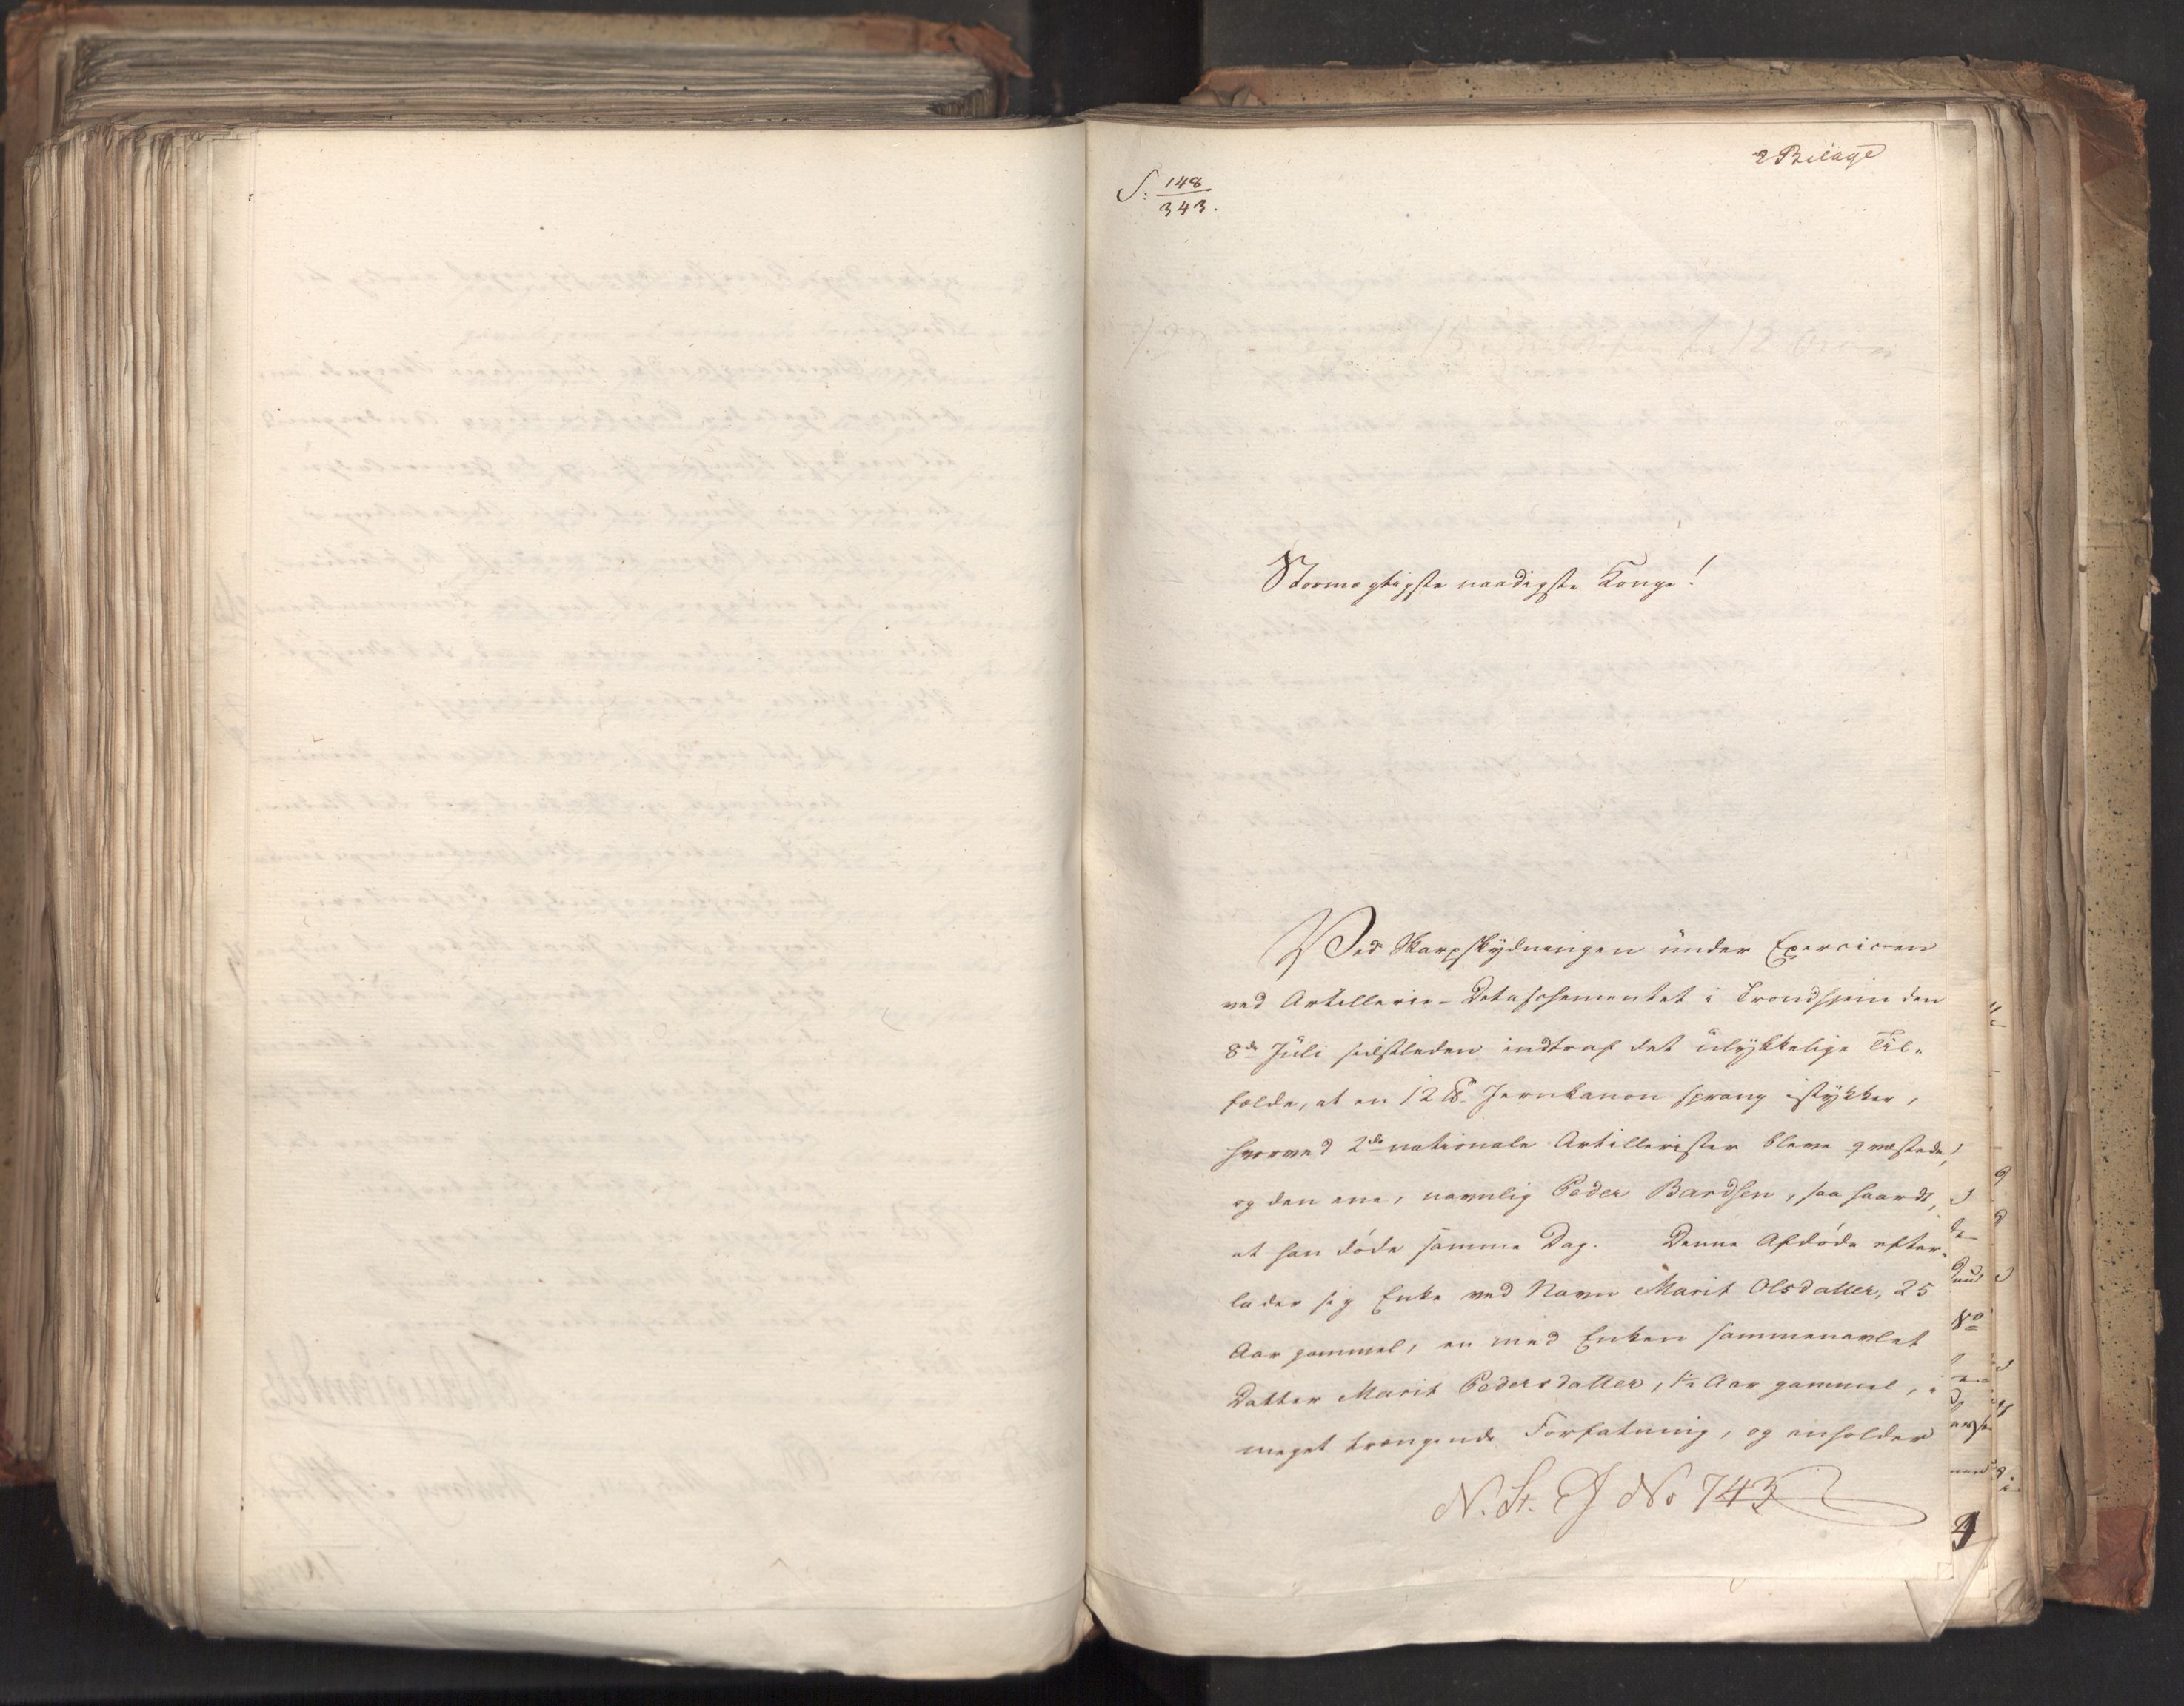 2 Bilage
S: 148/343.
Stormægtigste naadigste Konge!
Ved Skarpskydningen under Exercicen
ved Artillerie-Detaschementet i Trondhjem den
8de Juli sidstleden indtraf det ulykkelige Til-
fælde, at en 12 ℔ Jernkanon sprang istykker,
hvorved 2de nationale Artillerister bleve qvæstede,
og den ene, navnlig Peder Bardsen, saa haardt,
at han døde samme Dag. Denne Afdøde efter-
lader sig Enke ved Navn Marit Olsdatter, 25
Aar gammel, en med Enken sammenavlet
Datter Marit Pedersdatter, 1½ Aar gammel, i
meget trængende Forfatning, og anholder
N. St. J No 743